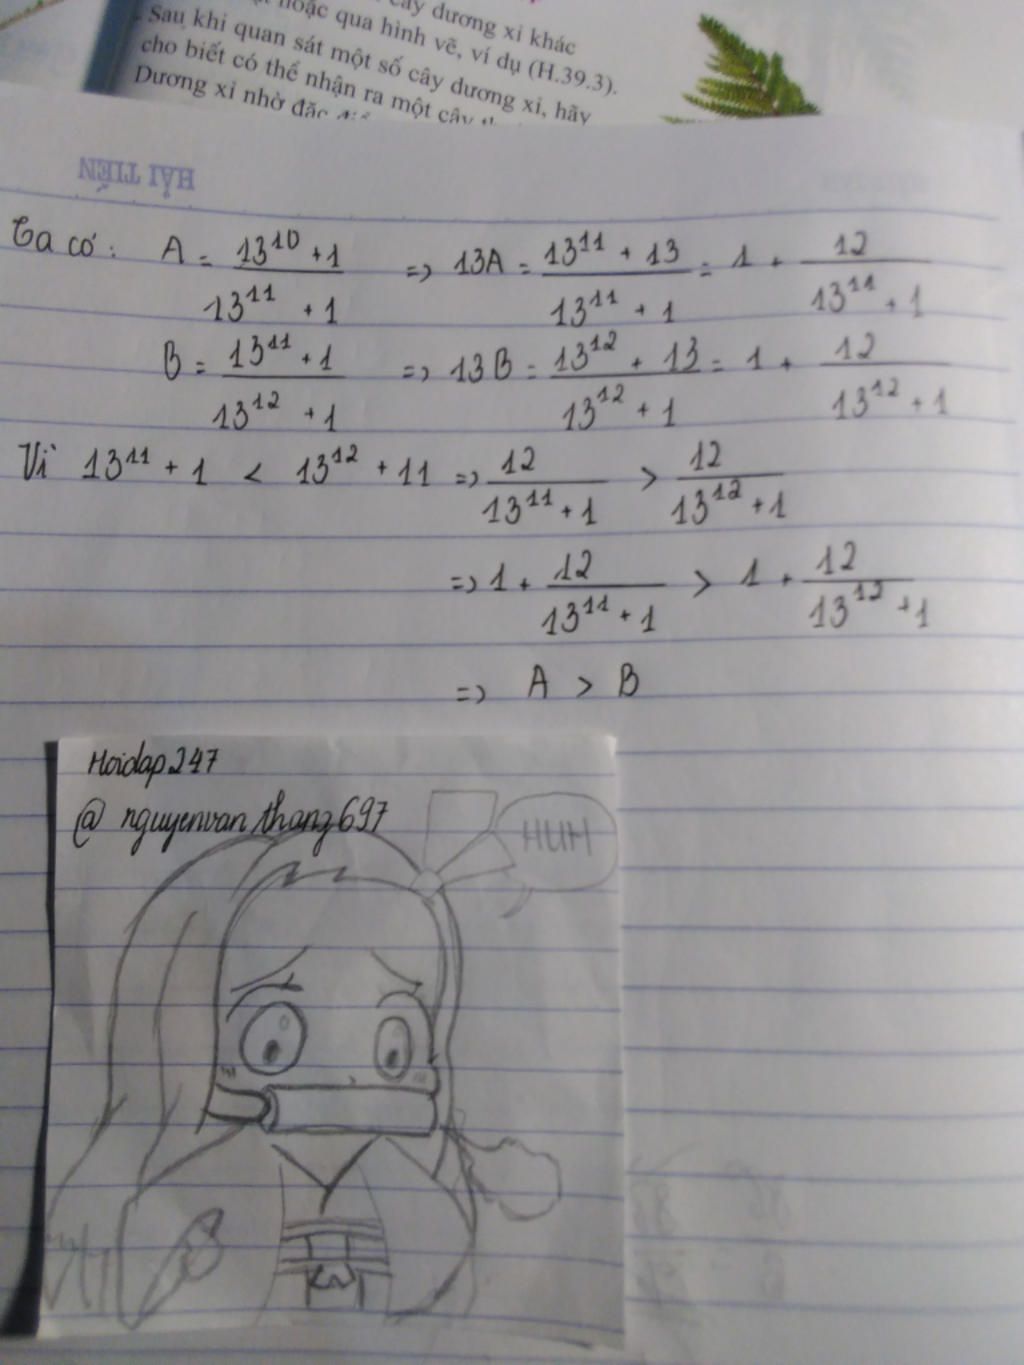 cây dương xỉ khác
hoặc qua hình vẽ, ví dụ (H.39.3).
Sau khi quan sát một số cây dương xỉ, hãy
cho biết có thể nhận ra một cây
Dương xỉ nhờ đặc
HẢI TIẾN
Ta có: A = (13^10 + 1)/(13^11 + 1) => 13A = (13^11 + 13)/(13^11 + 1) = 1 + 12/(13^11 + 1)
B = (13^11 + 1)/(13^12 + 1) => 13B = (13^12 + 13)/(13^12 + 1) = 1 + 12/(13^12 + 1)
Vì 13^11 + 1 < 13^12 + 11 => 12/(13^11 + 1) > 12/(13^12 + 1)
=> 1 + 12/(13^11 + 1) > 1 + 12/(13^12 + 1)
=> A > B
Hoidap247
@ nguyenvanthang697
HUH